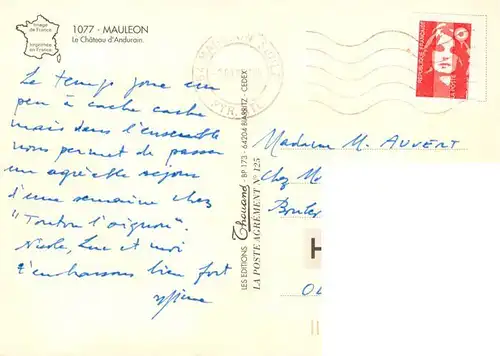 Image
de France
Imprimée
en France
1077 - MAULEON
Le Château d'Andurain.
Le temps joue un
peu à cache cache
mais dans l'ensemble
nous permet de passer
un agréable séjour
d'une semaine chez
"Tonton l'oignon".
Nicole, Luc et moi
t'embrassons bien fort
LES EDITIONS Thouand - BP 173 - 64204 BIARRITZ - CEDEX
LA POSTE AGRÉMENT N° 125
REPUBLIQUE FRANÇAISE
LA POSTE
Madame M. AUVERT
Chez
T